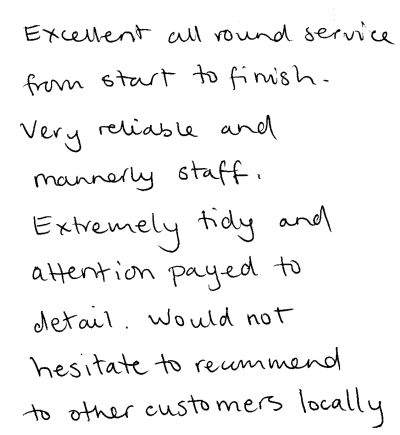 Excellent all round service
from start to finish.
Very reliable and
mannerly staff.
Extremely tidy and
attention payed to
detail. Would not
hesitate to recommend
to other customers locally